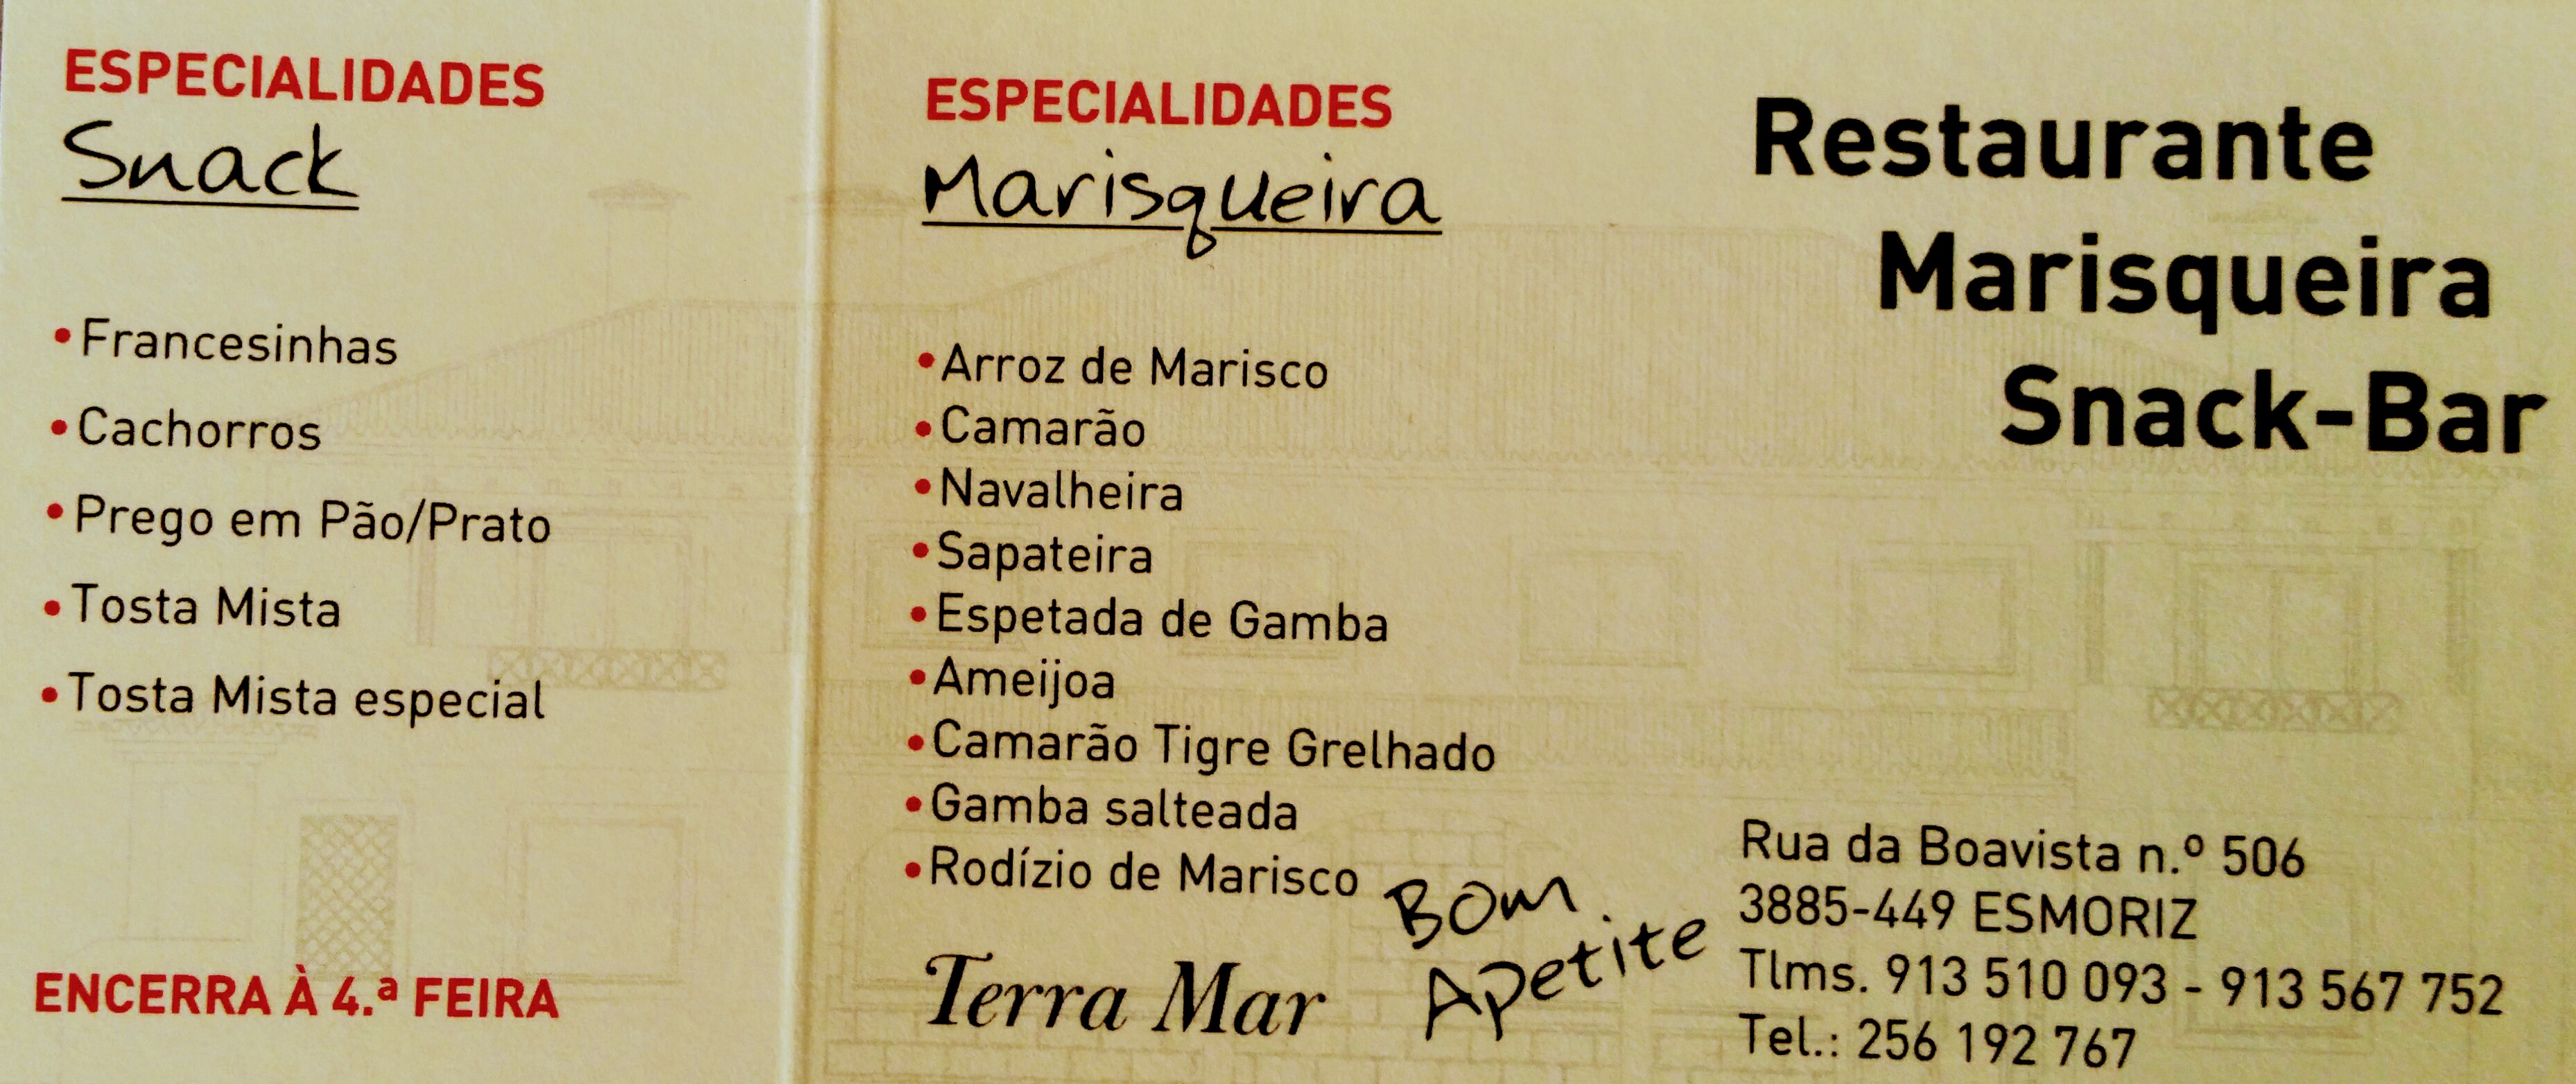 ESPECIALIDADES
Snack
•Francesinhas
•Cachorros
•Prego em Pão/Prato
•Tosta Mista
•Tosta Mista especial
ENCERRA À 4.ª FEIRA
ESPECIALIDADES
Marisqueira
•Arroz de Marisco
•Camarão
•Navalheira
•Sapateira
•Espetada de Gamba
•Ameijoa
•Camarão Tigre Grelhado
•Gamba salteada
•Rodízio de Marisco
Terra Mar
Bom
Apetite
Restaurante
Marisqueira
Snack-Bar
Rua da Boavista n.º 506
3885-449 ESMORIZ
Tlms. 913 510 093 - 913 567 752
Tel.: 256 192 767